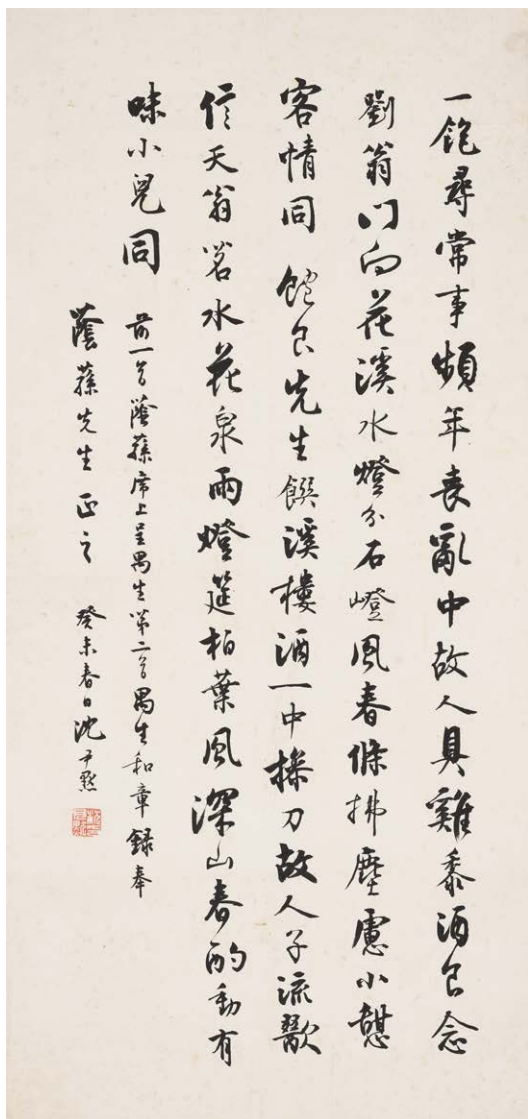 一飽尋常事頻年喪亂中故人具雞黍酒食念
劉翁門向花溪水燈分石嶝風春條拂塵慮小憩
客情同 飽食先生饌溪樓酒一中操刀故人子流歠
信天翁茗水花泉雨燈筵柏葉風深山春酌動有
味小兒同
前一首蔭蓀席上呈禺生第二首禺生和章錄奉
蔭蓀先生正之 癸未春日沈尹默